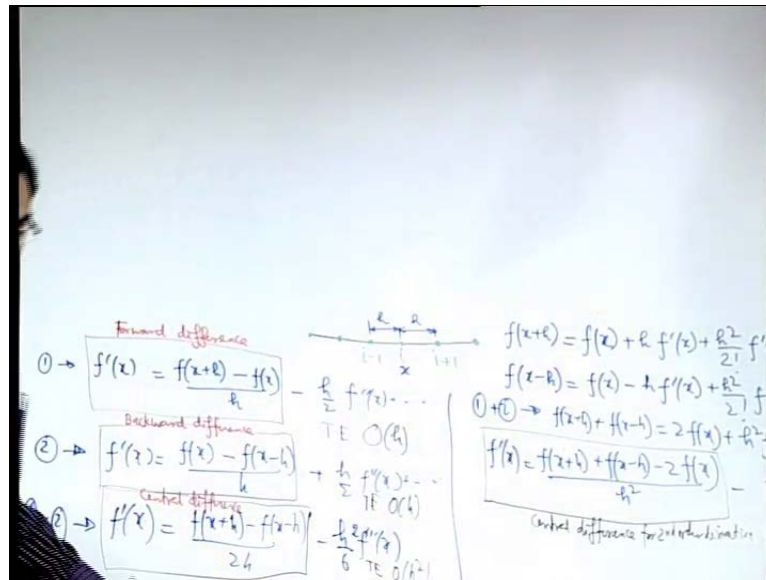 Forward difference
① → f'(x) = f(x+h) - f(x) / h - h/2 f''(x) - ...
TE O(h)
Backward difference
② → f'(x) = f(x) - f(x-h) / h + h/2 f''(x) - ...
TE O(h)
Central difference
② → f'(x) = f(x+h) - f(x-h) / 2h - h²/6 f'''(x)
TE O(h²)
h h
i-1 i i+1
x
f(x+h) = f(x) + h f'(x) + h²/2! f'
f(x-h) = f(x) - h f'(x) + h²/2! f
①+② → f(x+h) + f(x-h) = 2f(x) + h²
f''(x) = f(x+h) + f(x-h) - 2f(x) / h² -
Central difference for 2nd order derivative